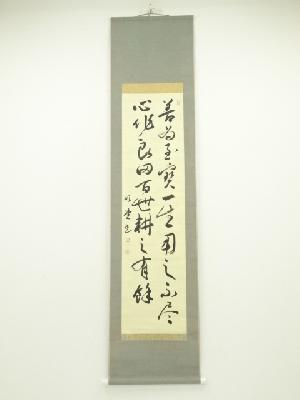 善為至寶一生用之不尽
心作良田百世耕之有餘